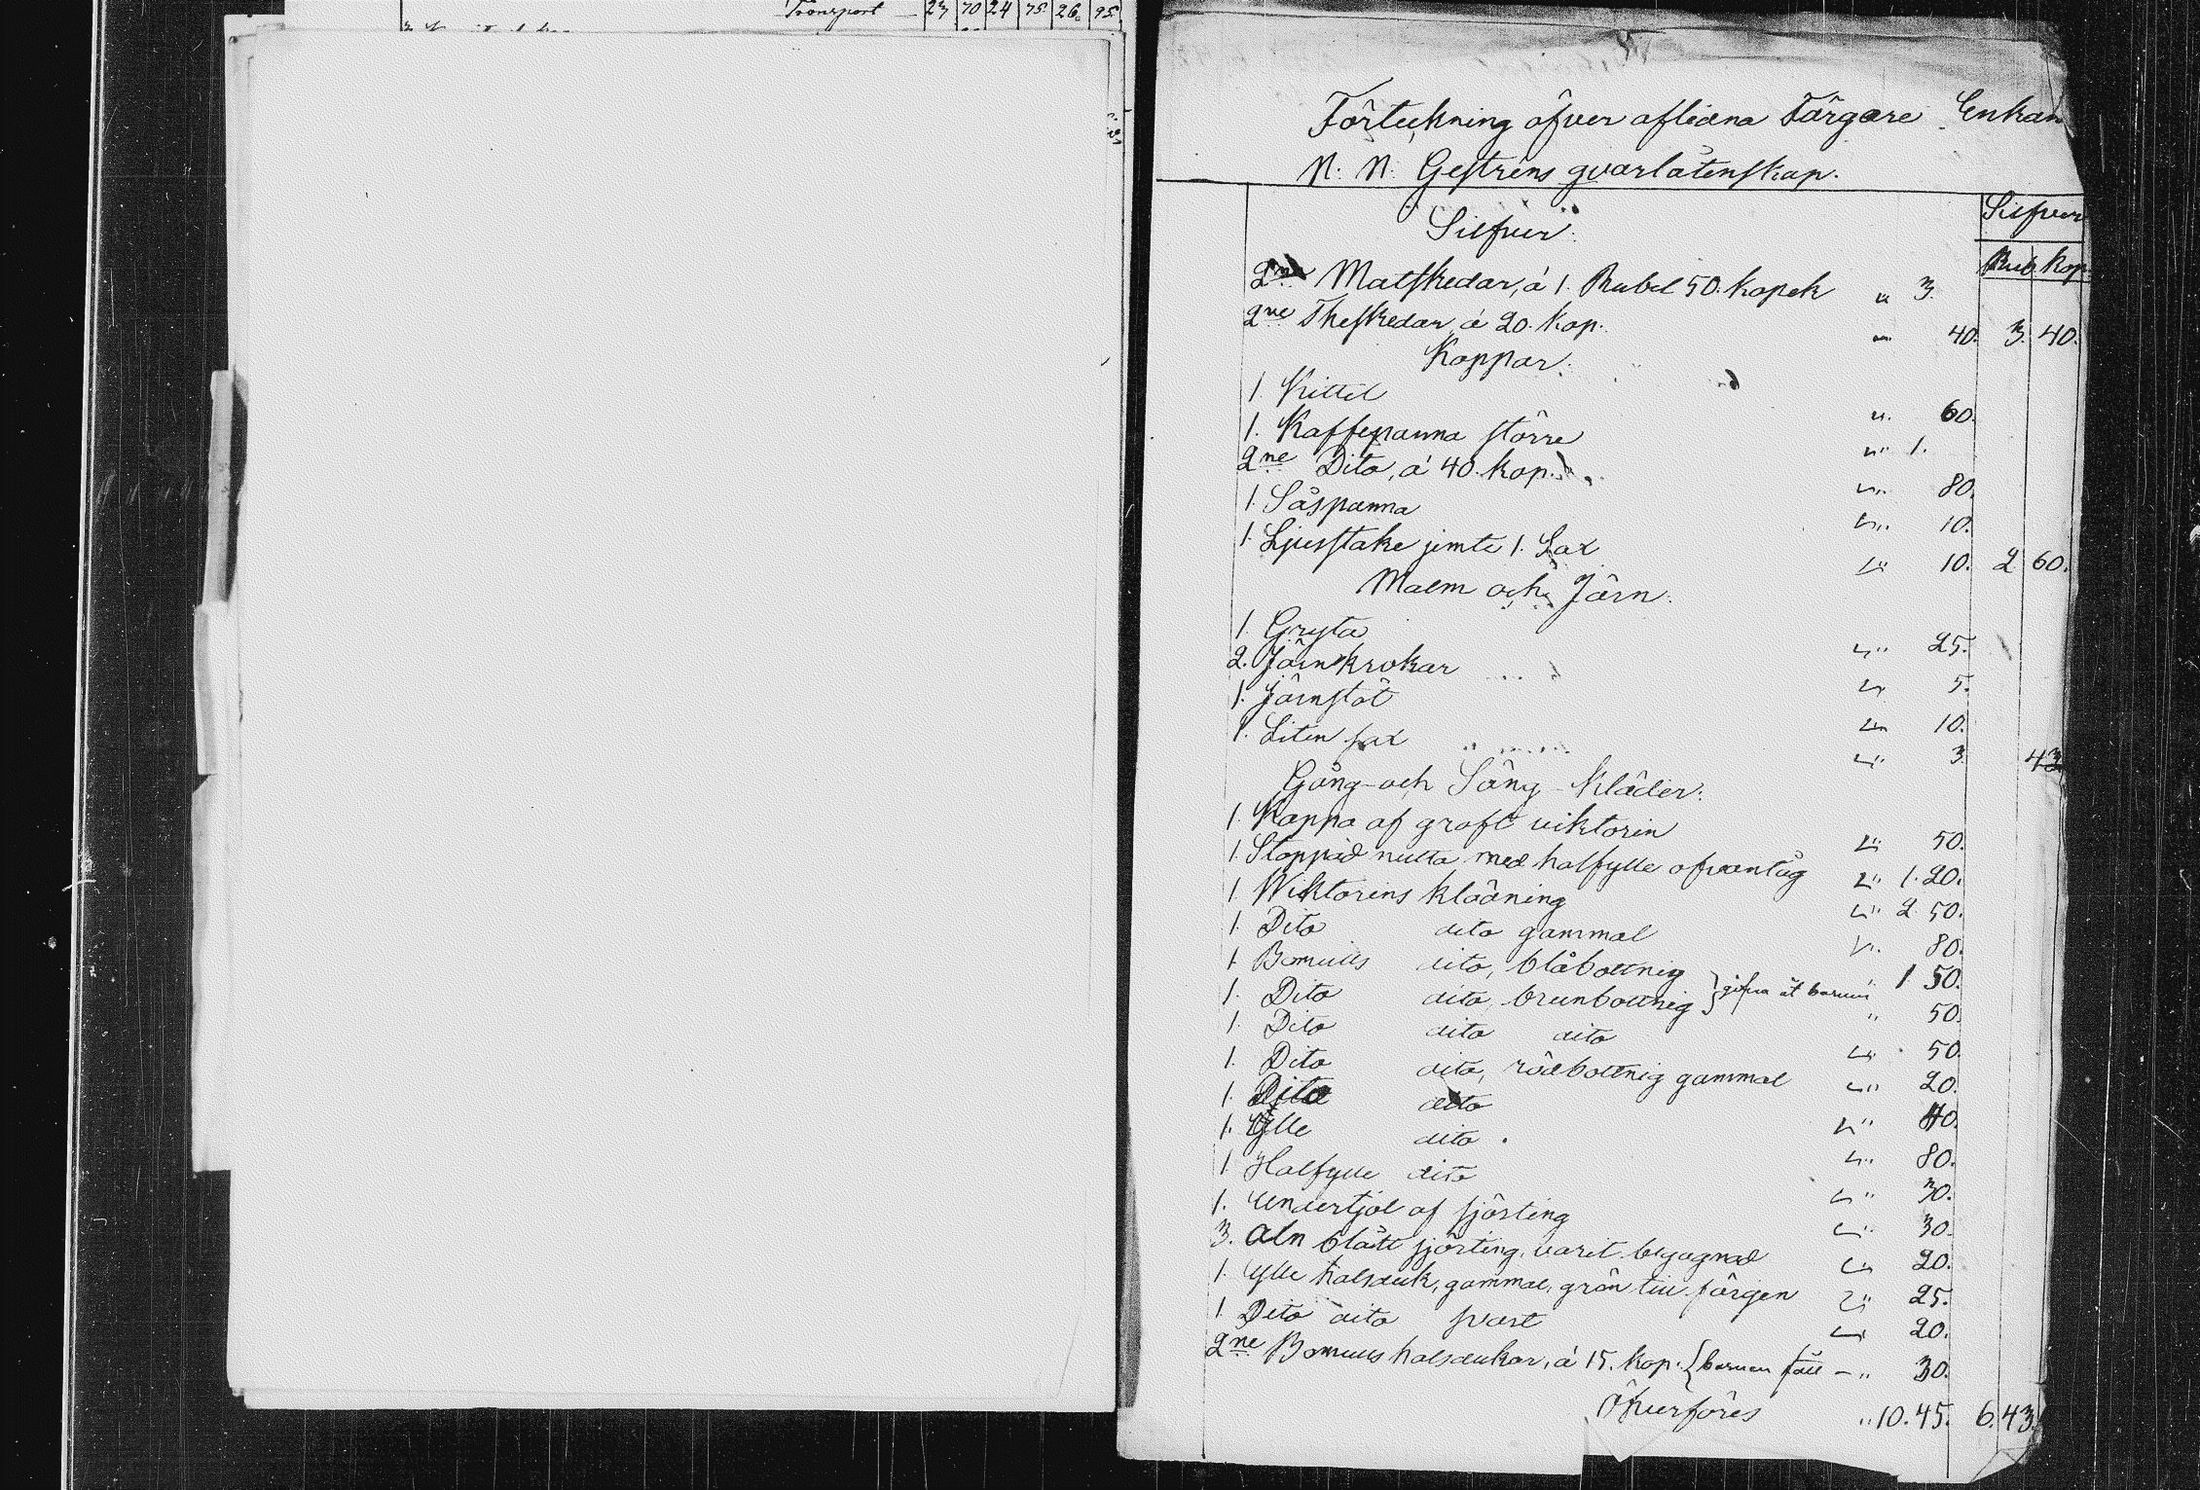 Transport 27 70 24 75 26 95
Förteckning öfver aflidna Färgare Enkan
N. N. Gestrens qvarlåtenskap.
Silfver
Rub Kop
Silfver:
2ne Matskedar, á 1. Rubel 50. kopek " 3.
2ne Theskedar, á 20. kop. " 40. 3. 40.
Koppar:
1. Kittel " 60.
1. Kaffepanna större " 1.
2ne Dito, á 40. kop. " 80.
1. Såspanna " 10.
1. Ljusstake jemte 1. Sax " 10. 2 60.
Malm och Järn:
1. Gryta " 25.
2. Järnkrokar " 5.
1. Järnstöt " 10.
1. Liten sax " 3. 43
Gång- och Säng-Kläder:
1. Kappa af groft viktorin " 50.
1. Stoppad mutta med halfylle ofvantåg " 1. 20.
1 Wiktorins klädning " 2 50.
1. Dito dito gammal " 80.
1 Bomulls dito, blåbottnig 1 50.
1. Dito dito, brunbottnig } gifna åt barnen " 50.
1. Dito dito dito " 50.
1. Dito dito, rödbottnig gammal " 20.
1. Dito dito " 40.
1. Ylle dito " 80.
1 Halfylle dito " 30.
1. Undertjol af sjörting " 30.
3. Aln blått sjörting, varit begagnad " 20.
1. Ylle halsduk, gammal, grön till färgen " 25.
1 Dito dito svart " 20.
2ne Bomulls halsdukar, á 15. kop. { barnen fått - " 30.
Öfverföres " 10. 45. 6. 43